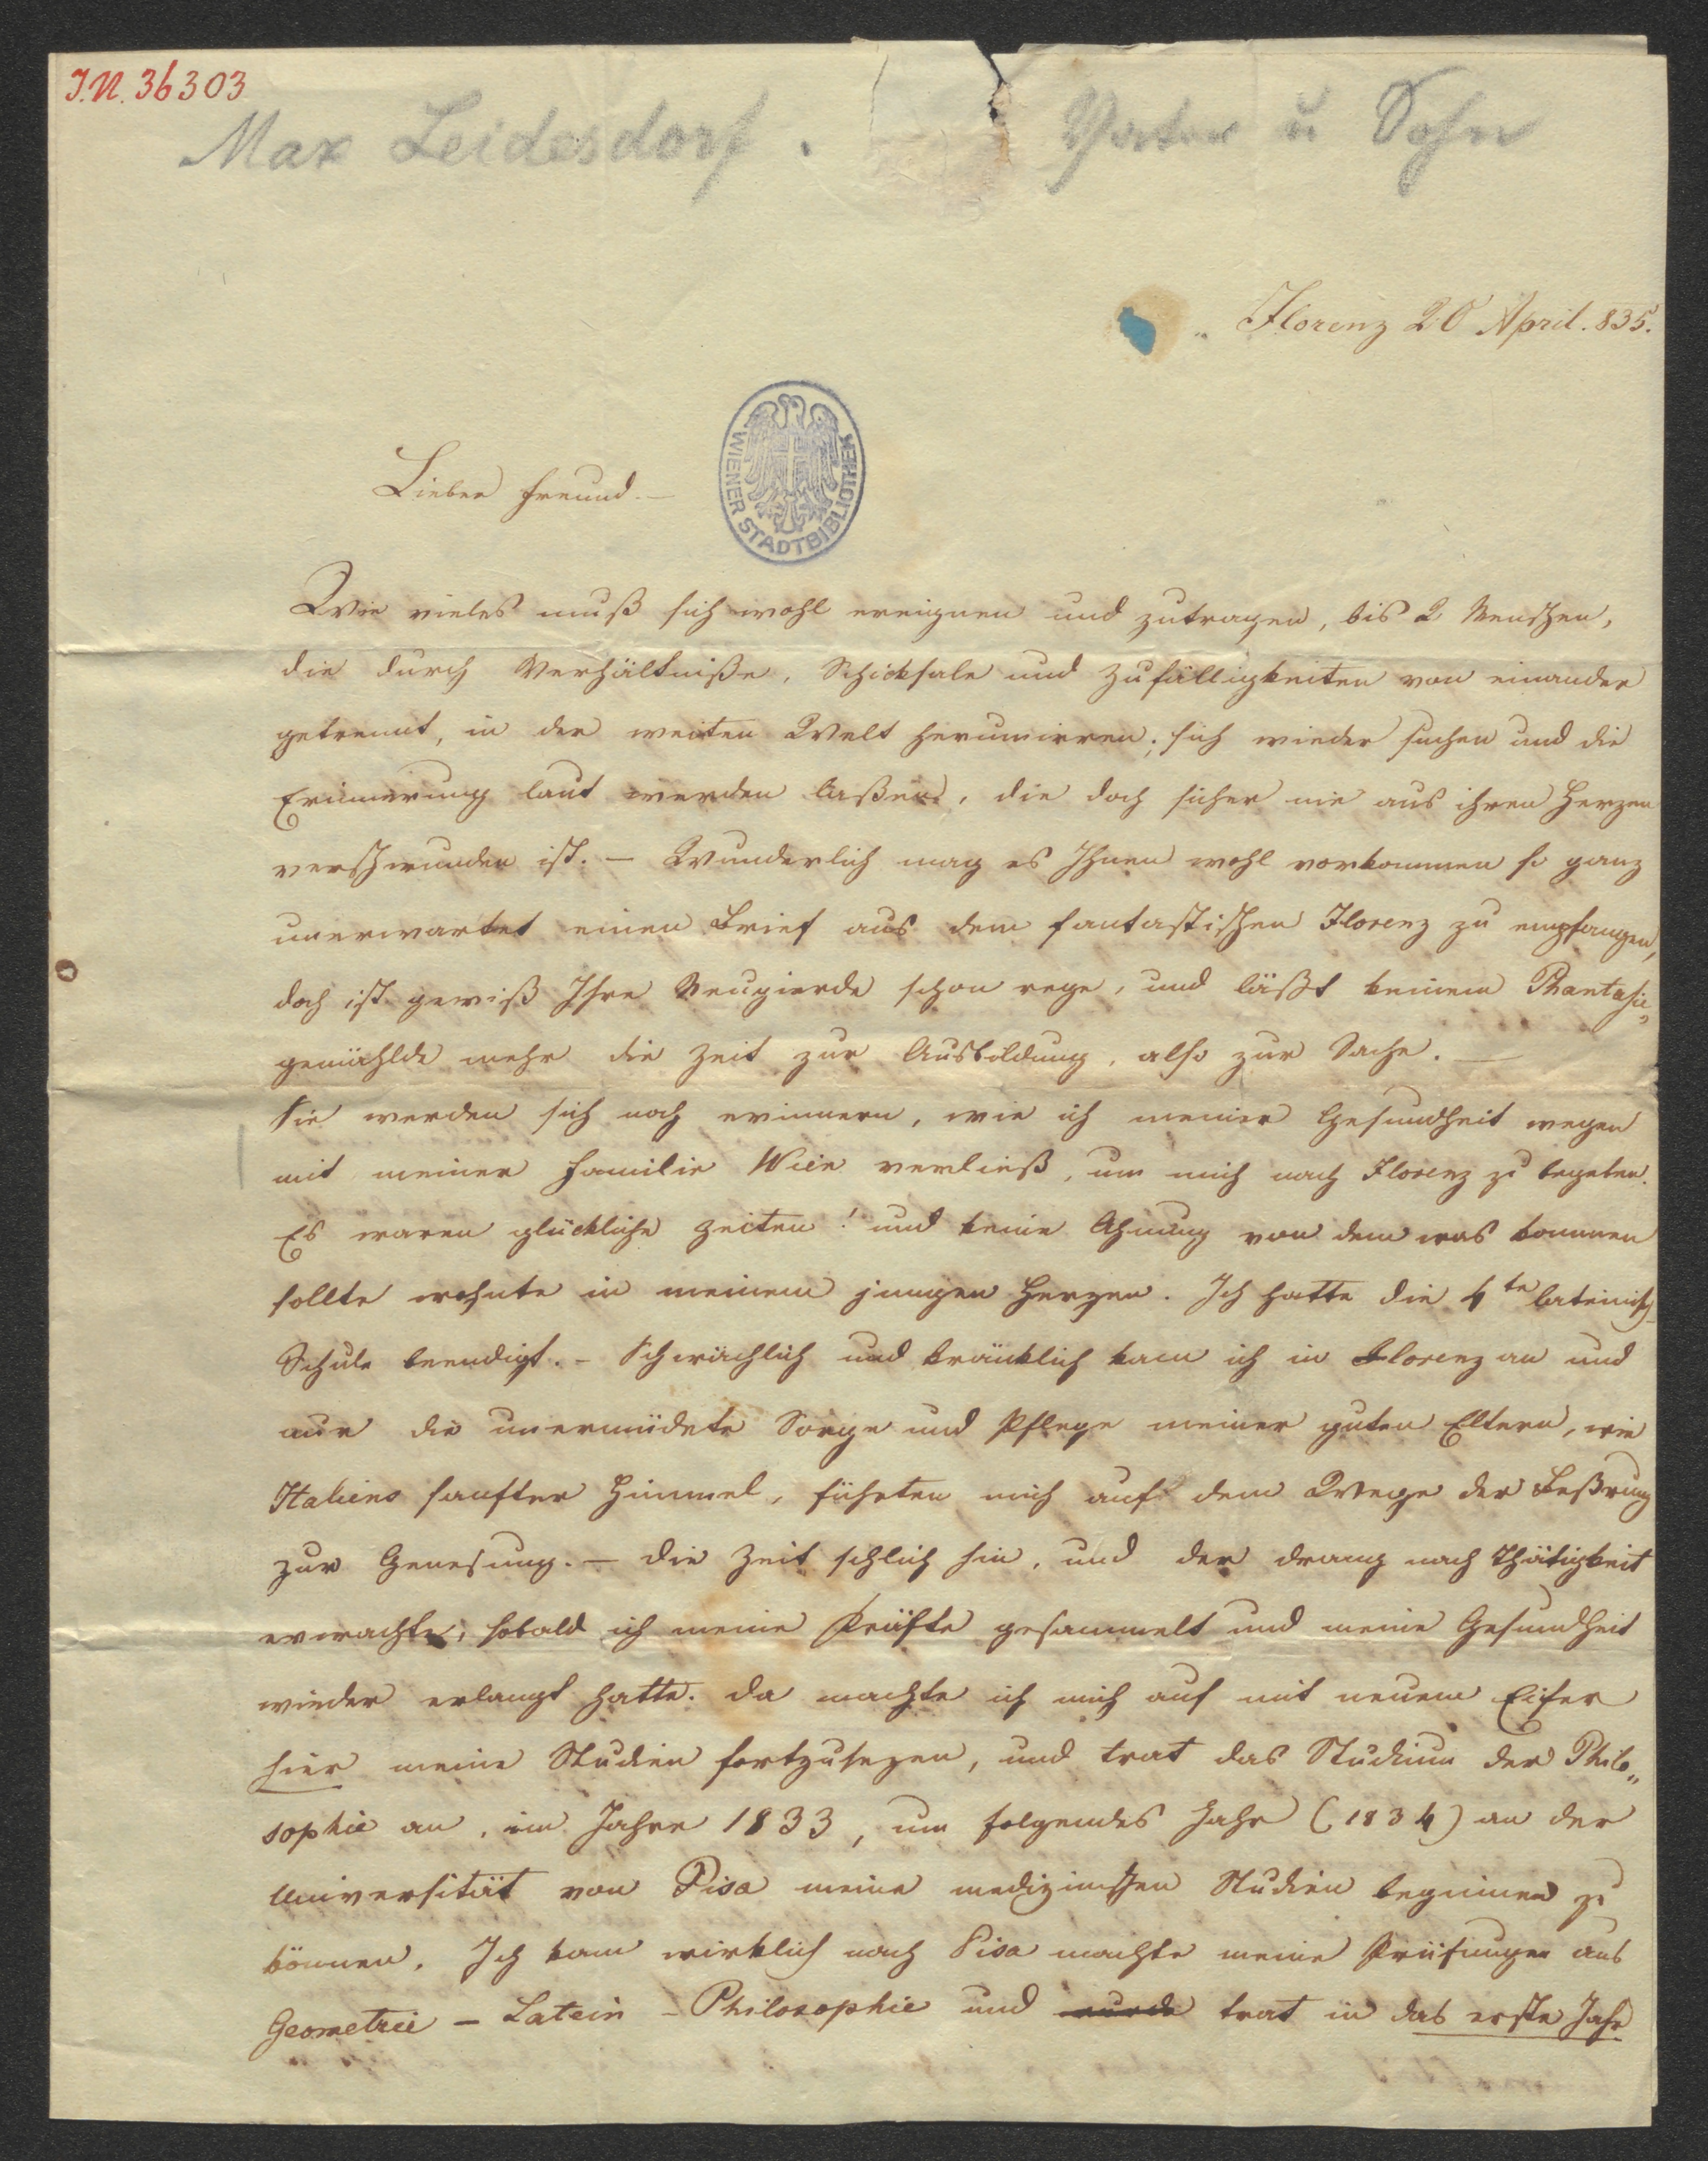 J.N. 36303
Max Leidesdorf. Vater u Sohn
Florenz 20 April. 835.
Lieber Freund. –
WIENER STADTBIBLIOTHEK
Wie vieles muß sich wohl ereignen und zutragen, bis 2 Menschen,
die durch Verhältniße, Schicksale und Zufälligkeiten von einander
getrennt, in der weiten Welt herumirren; sich wieder suchen und die
Erinnerung laut werden laßen, die doch sicher nie aus ihren Herzen
verschwunden ist. – Wunderlich mag es Ihnen wohl vorkommen so ganz
unerwartet einen Brief aus dem fantastischen Florenz zu empfangen,
doch ist gewiß Ihre Neugierde schon rege, und läßt keinem Phantasie„
gemählde mehr die Zeit zur Ausbildung, also zur Sache. –
Sie werden sich noch erinnern, wie ich meiner Gesundheit wegen
mit meiner Familie Wien verließ, um mich nach Florenz zu begeben.
Es waren glückliche Zeiten! und keine Ahnung von dem was kommen
sollte wohnte in meinem jungen Herzen. Ich hatte die 4te lateinisch
Schule beendigt. – Schwächlich und kränklich kam ich in Florenz an und
nur die unermüdete Sorge und Pflege meiner guten Eltern, wie
Italiens sanfter Himmel, führten mich auf dem Wege der Beßrung
zur Genesung. – Die Zeit schlich hin, und der Drang nach Thätigkeit
erwachte, sobald ich meine Kräfte gesammelt und meine Gesundheit
wieder erlangt hatte. Da machte ich mich auf mit neuem Eifer
hier meine Studien fortzusezen, und trat das Studium der Philo„
sophie an, im Jahre 1833, um folgendes Jahr (1834) an der
Universität von Pisa meine medizinischen Studien beginnen zu
können. Ich kam wirklich nach Pisa machte meine Prüfungen aus
Geometrie – Latein – Philosophie und wurde trat in das erste Jahr